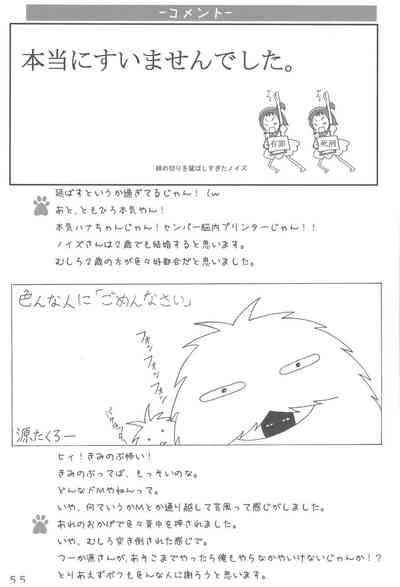 -コメント-
本当にすいませんでした。
有罪
死刑
締め切りを延ばしすぎたノイズ
延ばすというか過ぎてるじゃん!(w
あと、ともひろ本気やん!
本気ハナちゃんじゃん!センパー脳内プリンターじゃん!!
ノイズさんは2歳でも結婚すると思います。
むしろ2歳の方が色々好都合だと思いました。
色んな人に「ごめんなさい」
フォン
フォン
フォン
源たくろー
ヒィ!きみのぶ怖い!
きみのぶってば、もっそいのな。
どんなドMやねんって。
いや、何ていうかMとか通り越して台風って感じがしました。
あれのおかげで色々背中を押されました。
いや、むしろ突き倒された感じで。
つーか源さんが、あそこまでやったら俺もやらなかやいけないじゃんか!?
とりあえずボクも色んな人に謝ろうと思います。
55